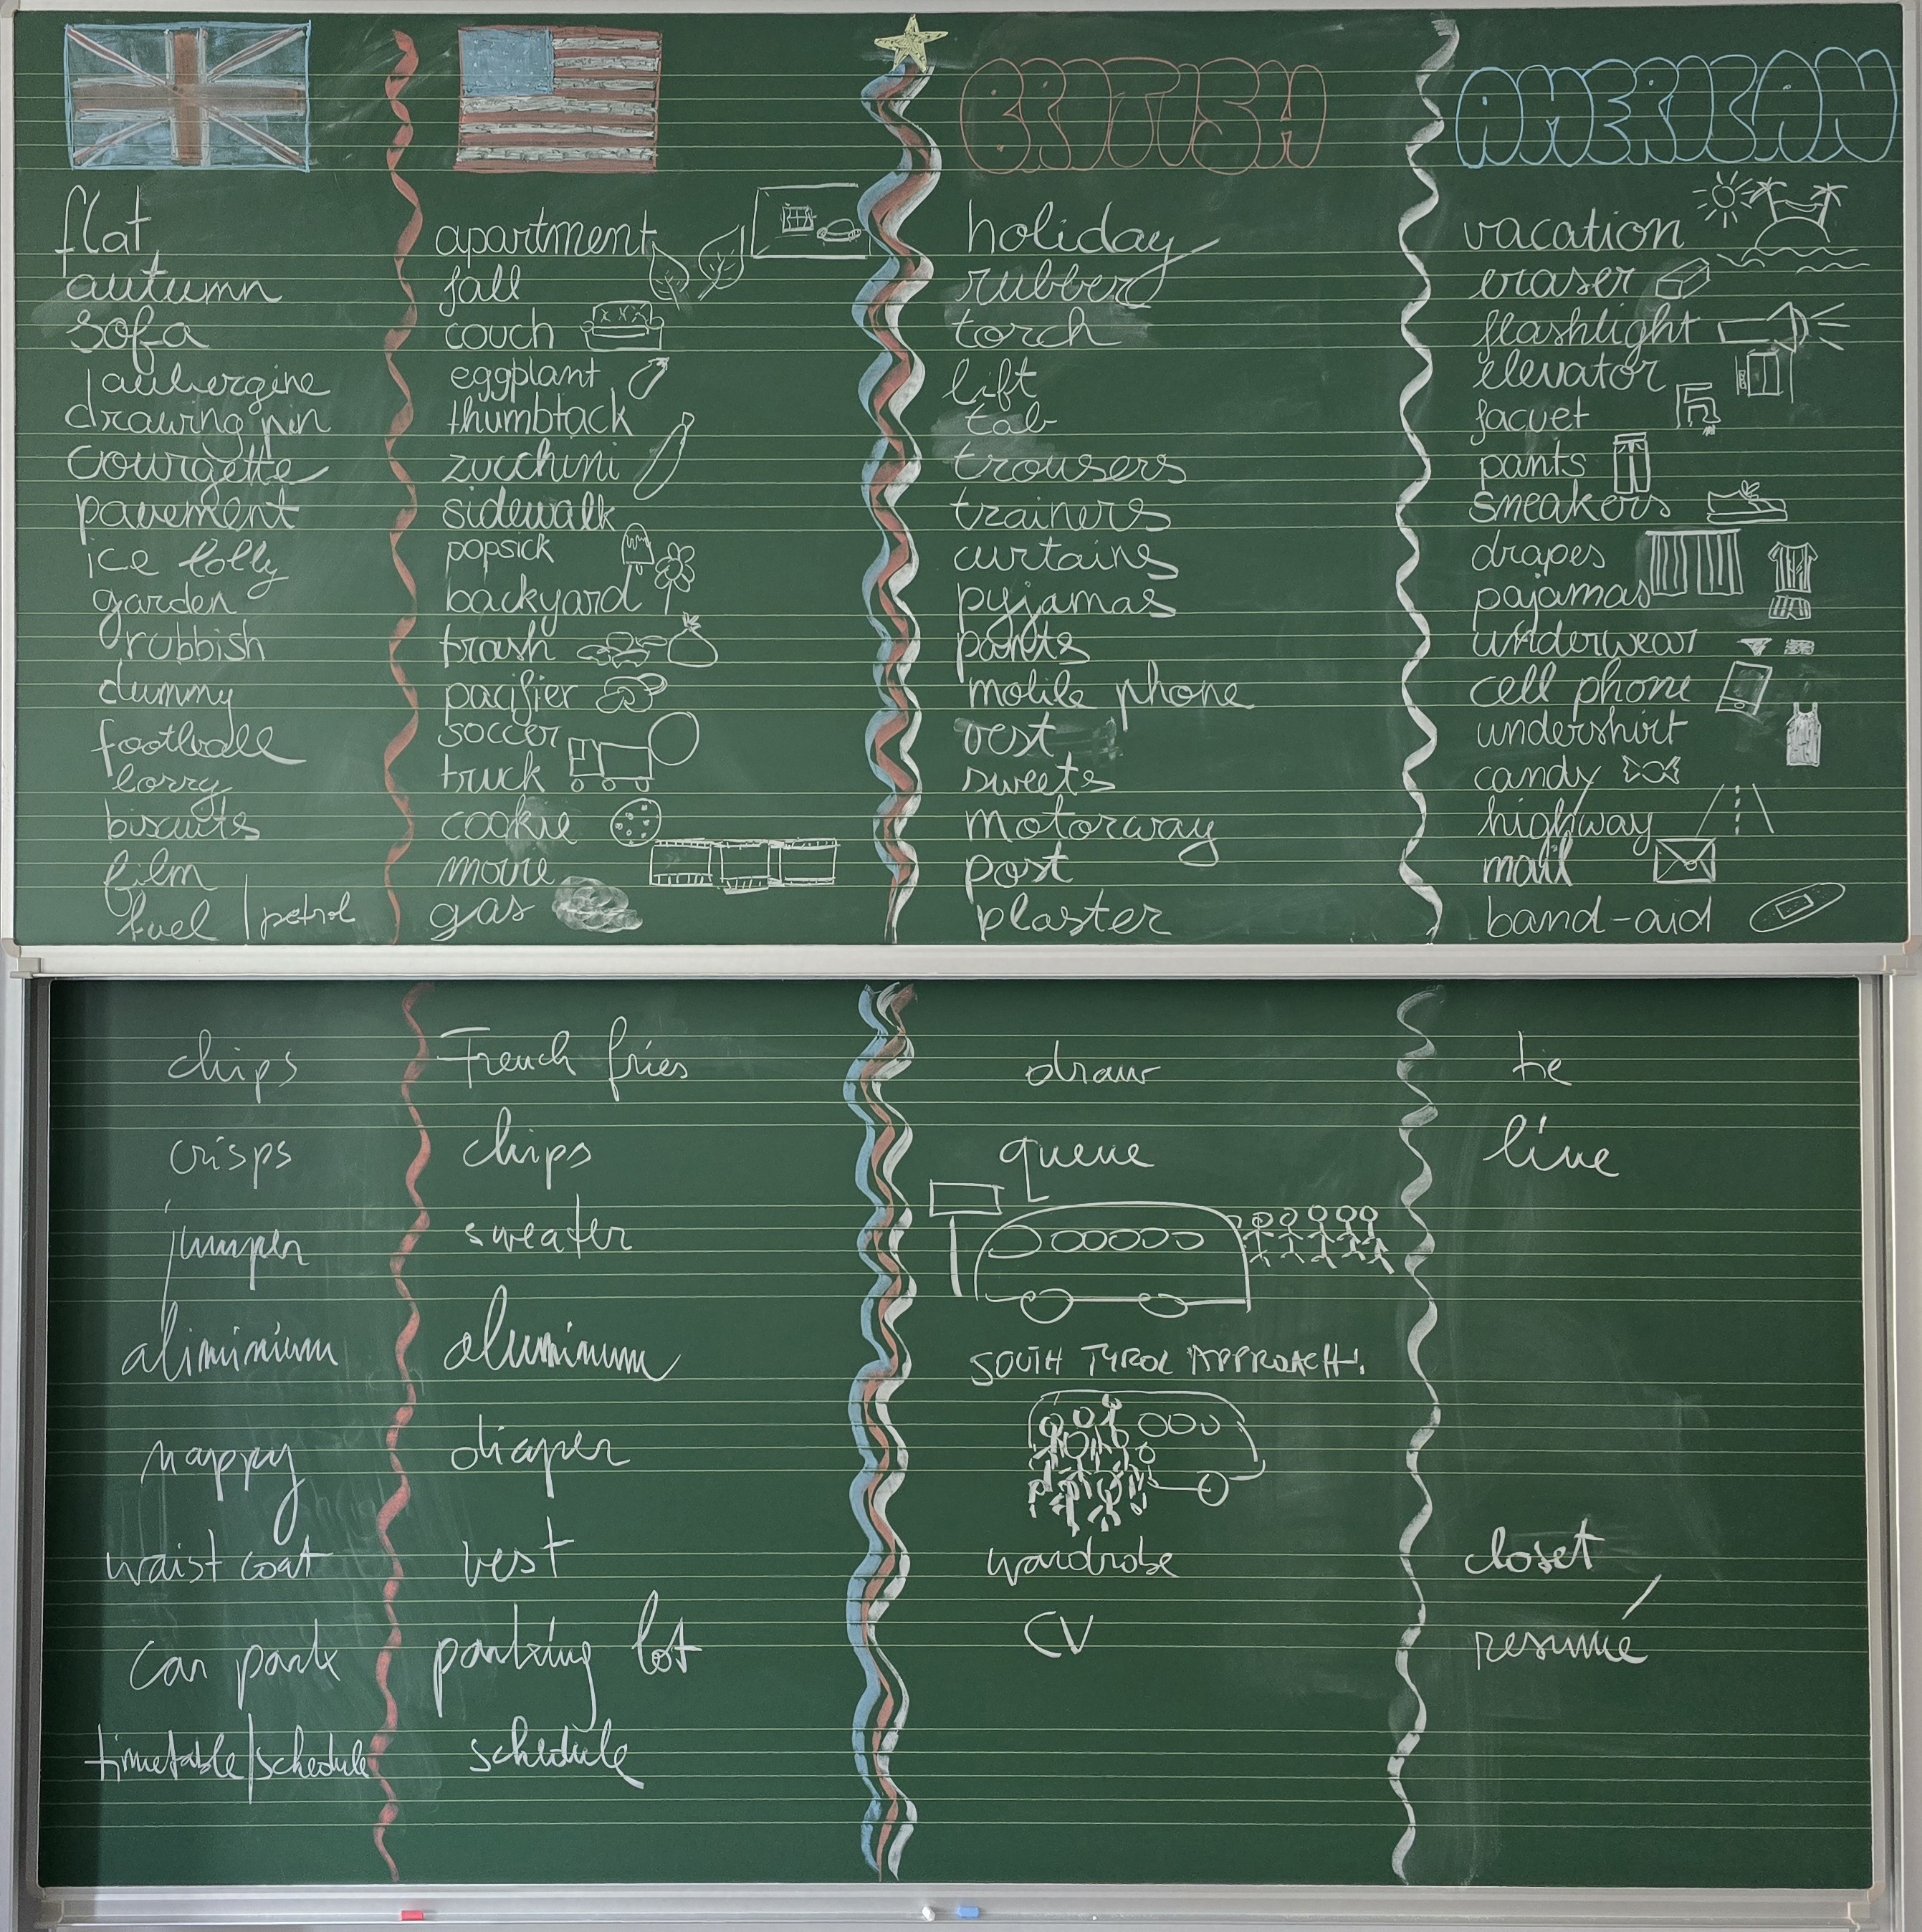 BRITISH AMERICAN
flat apartment holiday vacation
autumn fall rubber eraser
sofa couch torch flashlight
aubergine eggplant lift elevator
drawing pin thumbtack tab facuet
courgette zucchini trousers pants
pavement sidewalk trainers sneakers
ice lolly popsick curtains drapes
garden backyard pyjamas pajamas
rubbish trash pants underwear
dummy pacifier mobile phone cell phone
football soccer vest undershirt
lorry truck sweets candy
biscuits cookie motorway highway
film movie post mail
fuel / petrol gas plaster band-aid
chips French fries draw tie
crisps chips queue line
jumper sweater
aliminium aluminum SOUTH TYROL APPROACH!
nappy diaper
waist coat vest wardrobe closet
car park parking lot CV resumé
timetable/schedule schedule